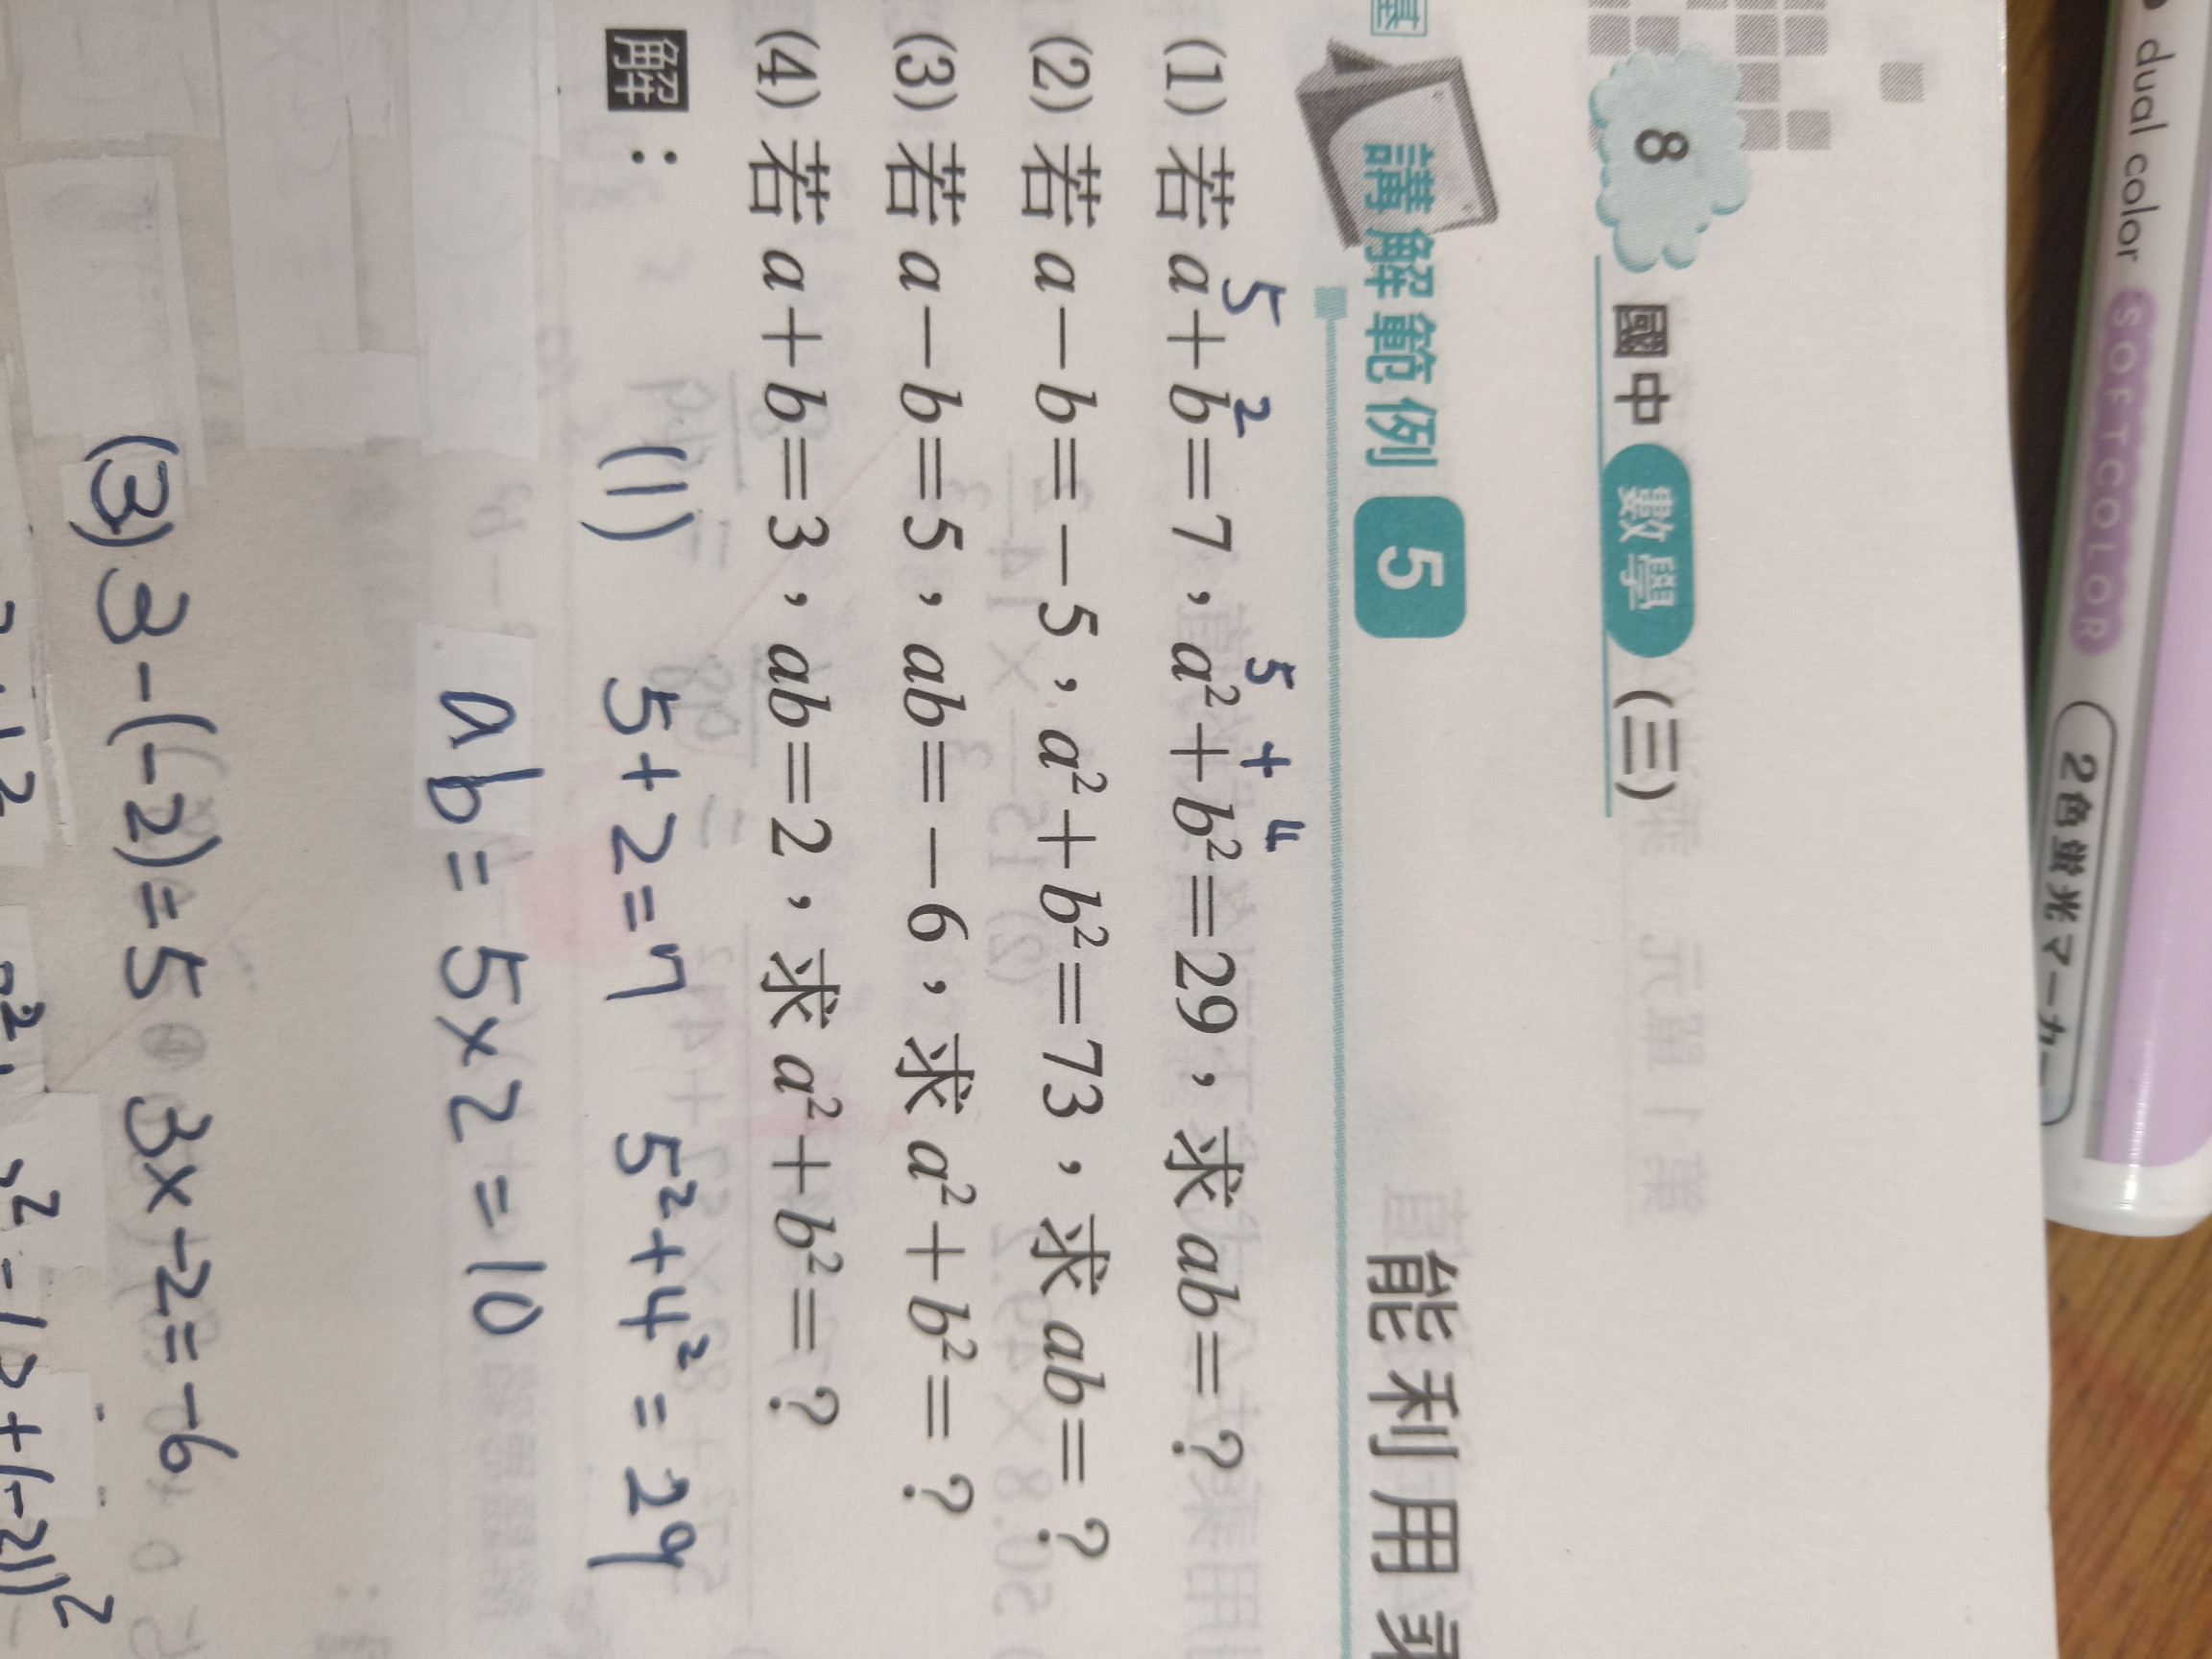 dual color SOFTCOLOR 2色蛍光マーカー
8 國中 數學 (三)
講解範例 5 能利用乘
5 2 5 + 4
(1) 若 a+b=7，a²+b²=29，求 ab=？
(2) 若 a－b=－5，a²+b²=73，求 ab=？
(3) 若 a－b=5，ab=－6，求 a²+b²=？
(4) 若 a+b=3，ab=2，求 a²+b²=？
解： (1) 5+2=7 5²+4²=29
ab=5×2=10
(3) 3-(-2)=5 3×-2=-6